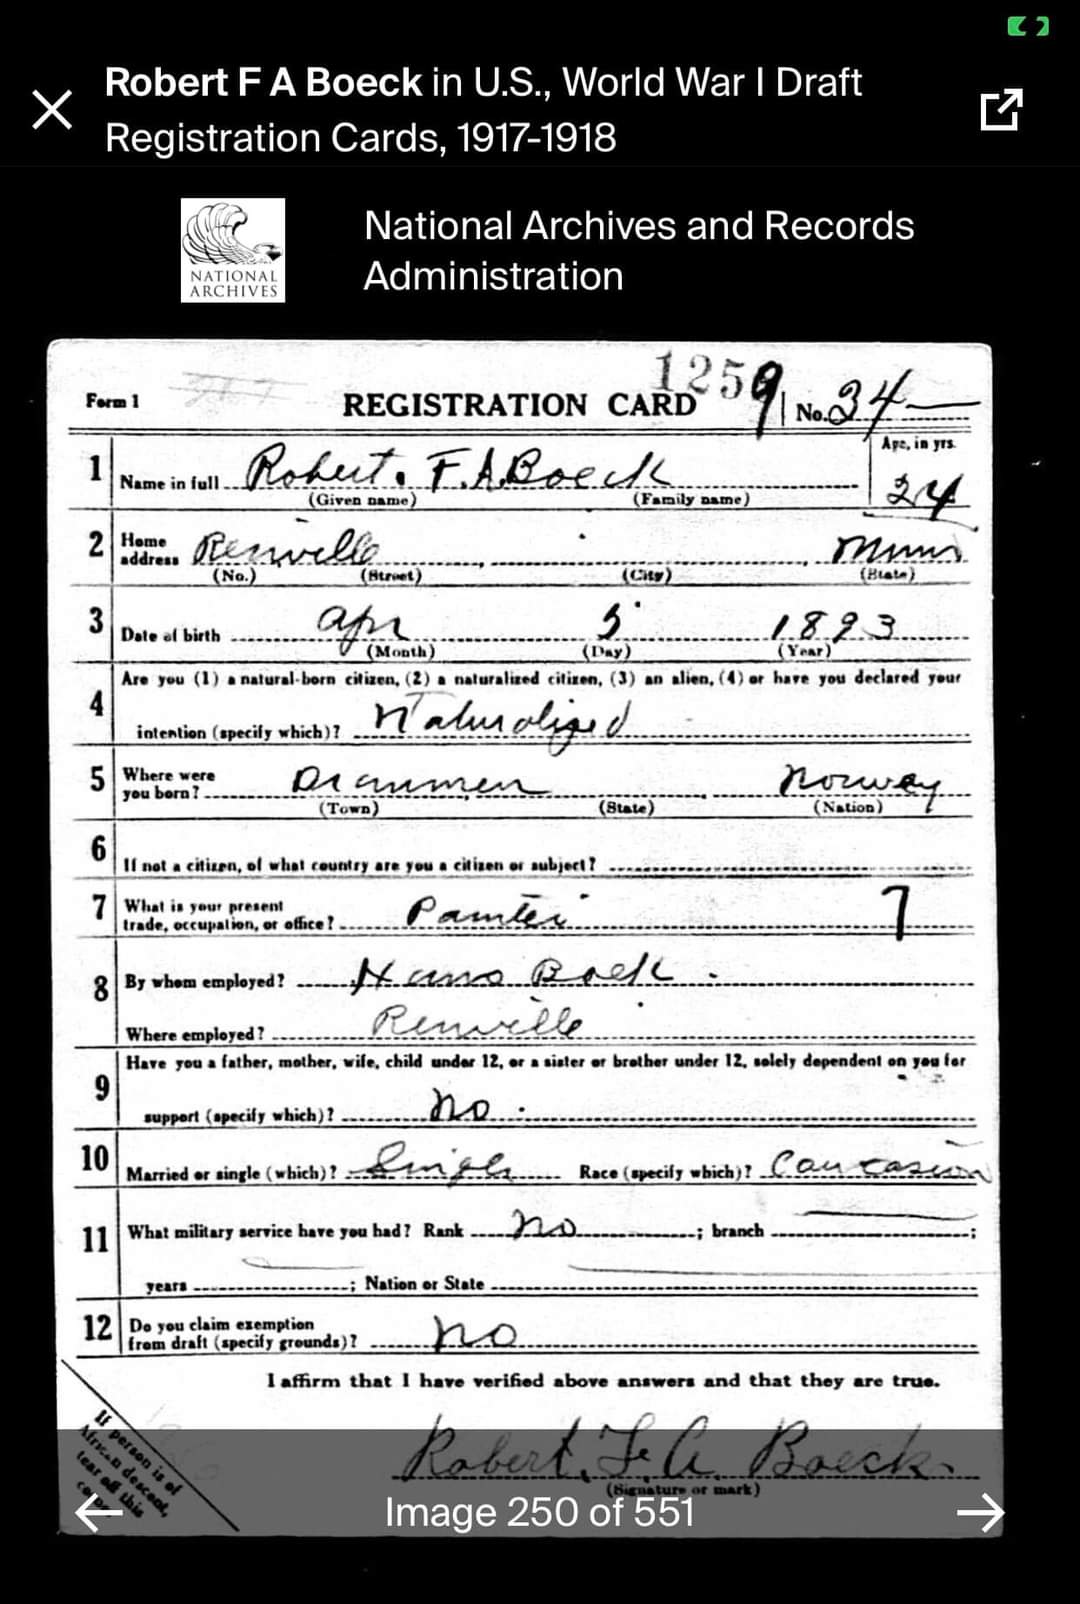 Robert F A Boeck in U.S., World War I Draft
Registration Cards, 1917-1918
NATIONAL
ARCHIVES
National Archives and Records
Administration
1259
Form 1 REGISTRATION CARD No. 34
Age, in yrs.
1 Name in full Robert. F.A. Boeck 24
(Given name) (Family name)
2 Home address Renville Minn
(No.) (Street) (City) (State)
3 Date of birth Apr 5 1893
(Month) (Day) (Year)
Are you (1) a natural-born citizen, (2) a naturalized citizen, (3) an alien, (4) or have you declared your
4 intention (specify which)? Naturalized
5 Where were you born? Drammen Norway
(Town) (State) (Nation)
6 If not a citizen, of what country are you a citizen or subject?
7 What is your present trade, occupation, or office? Painter 7
8 By whom employed? Hans Boeck
Where employed? Renville
Have you a father, mother, wife, child under 12, or a sister or brother under 12, solely dependent on you for
9 support (specify which)? no
10 Married or single (which)? Single Race (specify which)? Caucasion
11 What military service have you had? Rank no ; branch ;
years ; Nation or State
12 Do you claim exemption from draft (specify grounds)? no
I affirm that I have verified above answers and that they are true.
If person is of
African descent,
tear off this
Robert. F. A. Boeck.
(Signature or mark)
Image 250 of 551